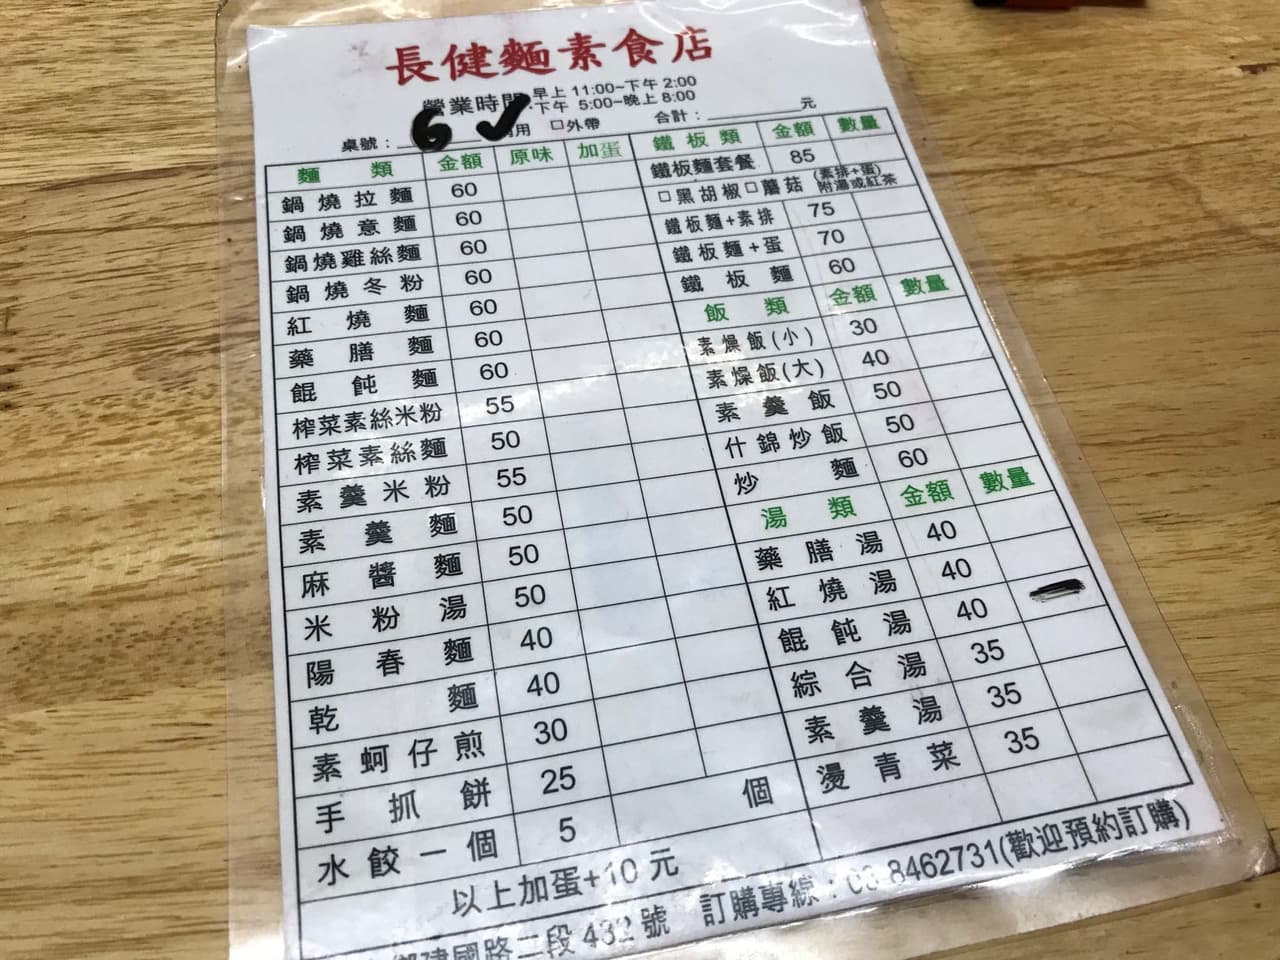 長健麵素食店
營業時間 早上 11:00~下午 2:00
下午 5:00~晚上 8:00
桌號：6 ✓ 用 □外帶 合計：元
麵類 金額 原味 加蛋
鍋燒拉麵 60
鍋燒意麵 60
鍋燒雞絲麵 60
鍋燒冬粉 60
紅燒麵 60
藥膳麵 60
餛飩麵 60
榨菜素絲米粉 55
榨菜素絲麵 50
素羹米粉 55
素羹麵 50
麻醬麵 50
米粉湯 50
陽春麵 40
乾麵 40
素蚵仔煎 30
手抓餅 25
水餃一個 5 個
以上加蛋+10 元
鐵板類 金額 數量
鐵板麵套餐 85
□黑胡椒□蘑菇 (素排+蛋)
附湯或紅茶
鐵板麵+素排 75
鐵板麵+蛋 70
鐵板麵 60
飯類 金額 數量
素燥飯(小) 30
素燥飯(大) 40
素羹飯 50
什錦炒飯 50
炒麵 60
湯類 金額 數量
藥膳湯 40
紅燒湯 40
餛飩湯 40
綜合湯 35
素羹湯 35
燙青菜 35
建國路二段 432 號 訂購專線：03-8462731(歡迎預約訂購)